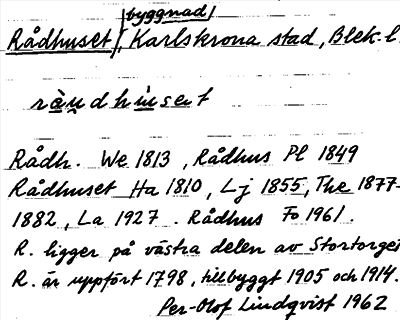 byggnad
Rådhuset, Karlskrona stad, Blek. l.
ràu̯dhu̇set
Rådh. We 1813, Rådhus Pl 1849
Rådhuset Ha 1810, Lj 1855, The 1877-
1882, La 1927. Rådhus Fo 1961.
R. ligger på västra delen av Stortorget
R. är uppfört 1798, tillbyggt 1905 och 1914.
Per-Olof Lindqvist 1962